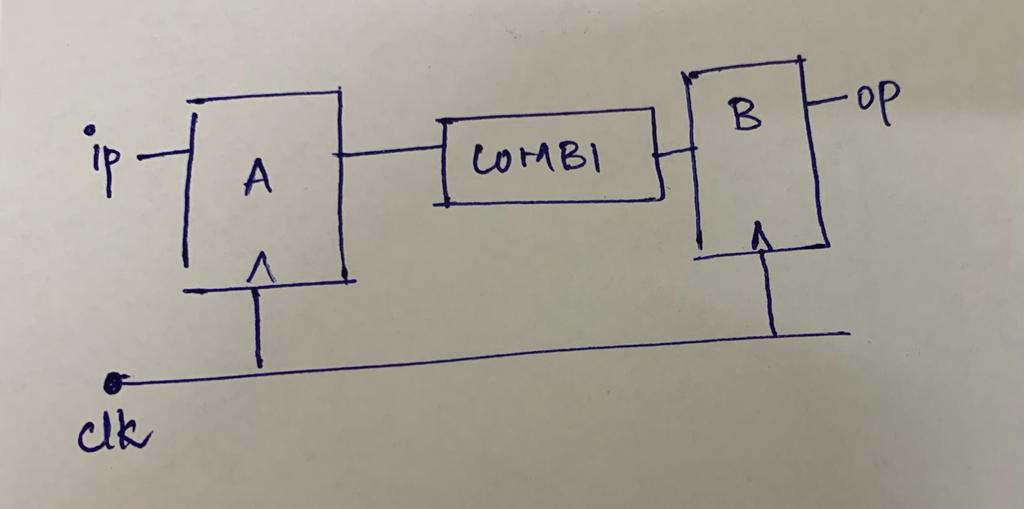 ip
A
COMBI
B
op
clk